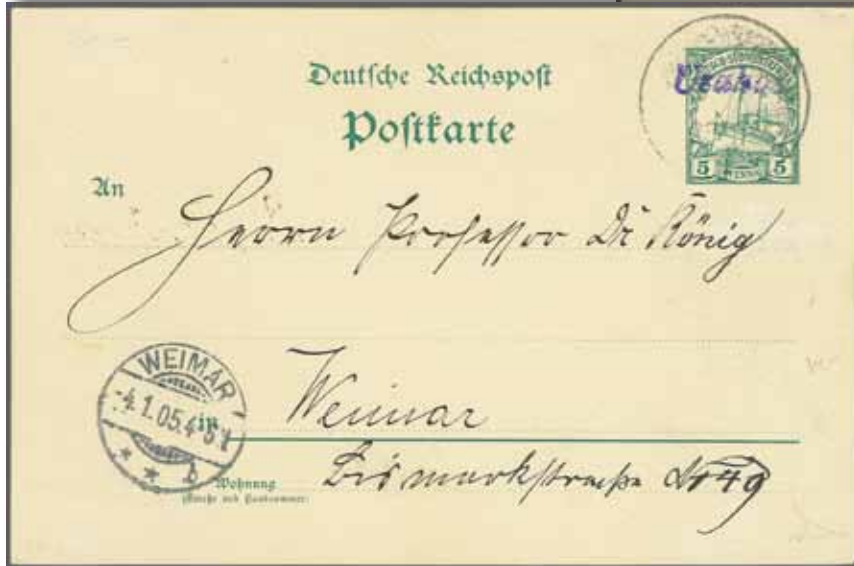 Deutsche Reichspost
Postkarte
5 5
An
Herrn Professor Dr König
WEIMAR
4.1.05.4-5N
in Weimar
Wohnung
(Straße und Hausnummer)
Bismarkstraße No 49